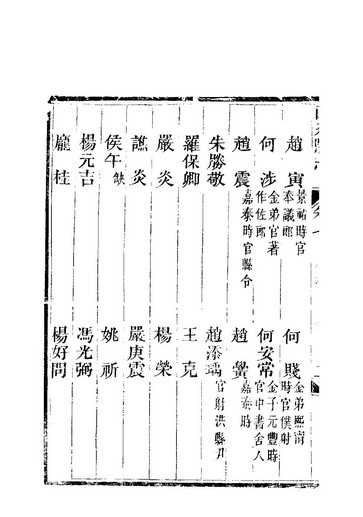 趙寅 景祐時官奉議郎
何賤 金弟熙甯時官僕射
何涉 金弟官著作佐郎
何安常 金子元豐時官中書舍人
趙震 嘉泰時官縣令
趙黌 嘉泰時
朱勝敬
趙添瑀 官射洪縣尹
羅保卿
王克
嚴炎
楊榮
譙炎
嚴庚震
侯午
姚祈
楊元吉
馮光弼
龐桂
楊好問